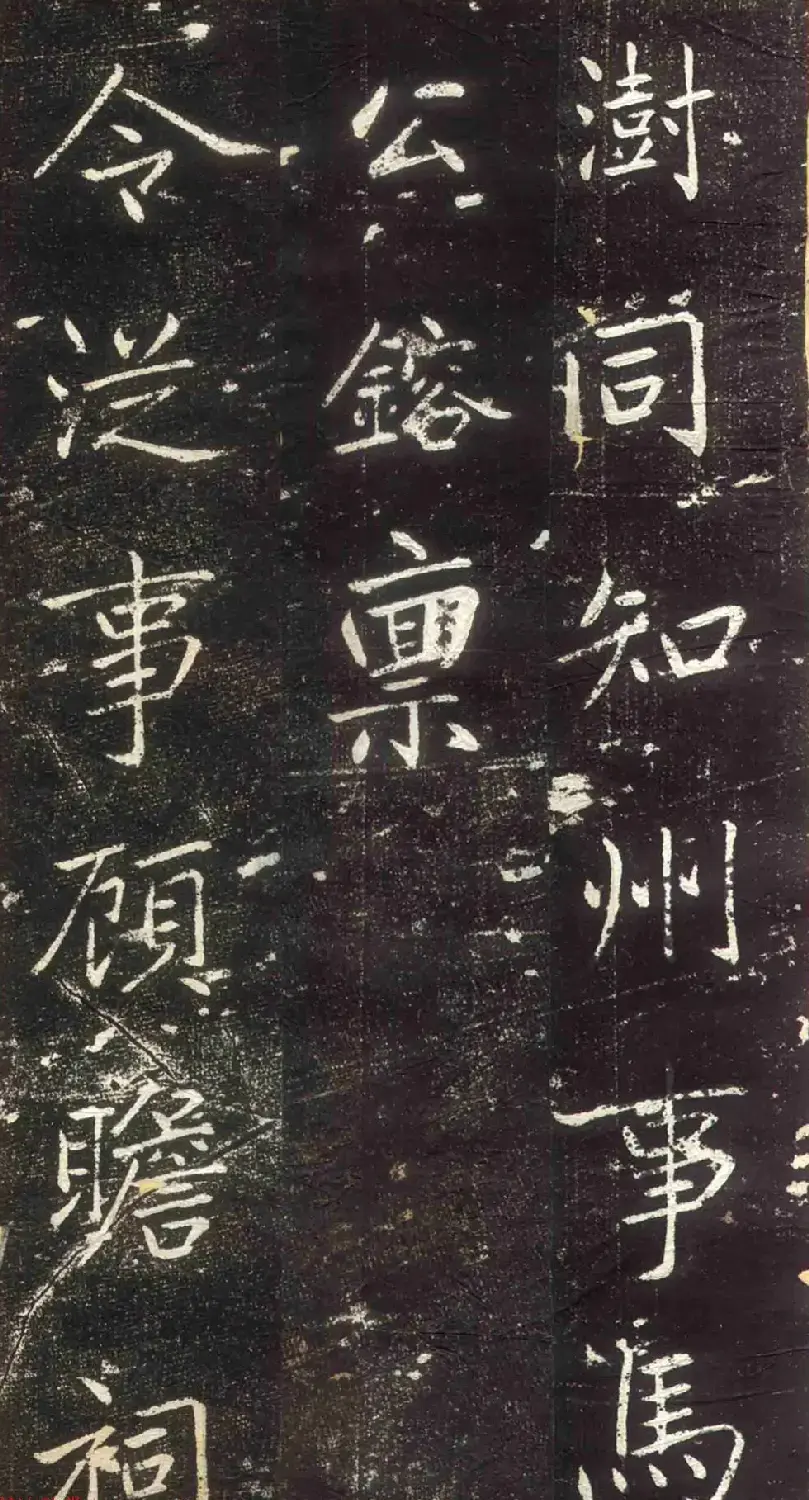 澍同知州事馬
公鎔禀
令從事顧瞻祠